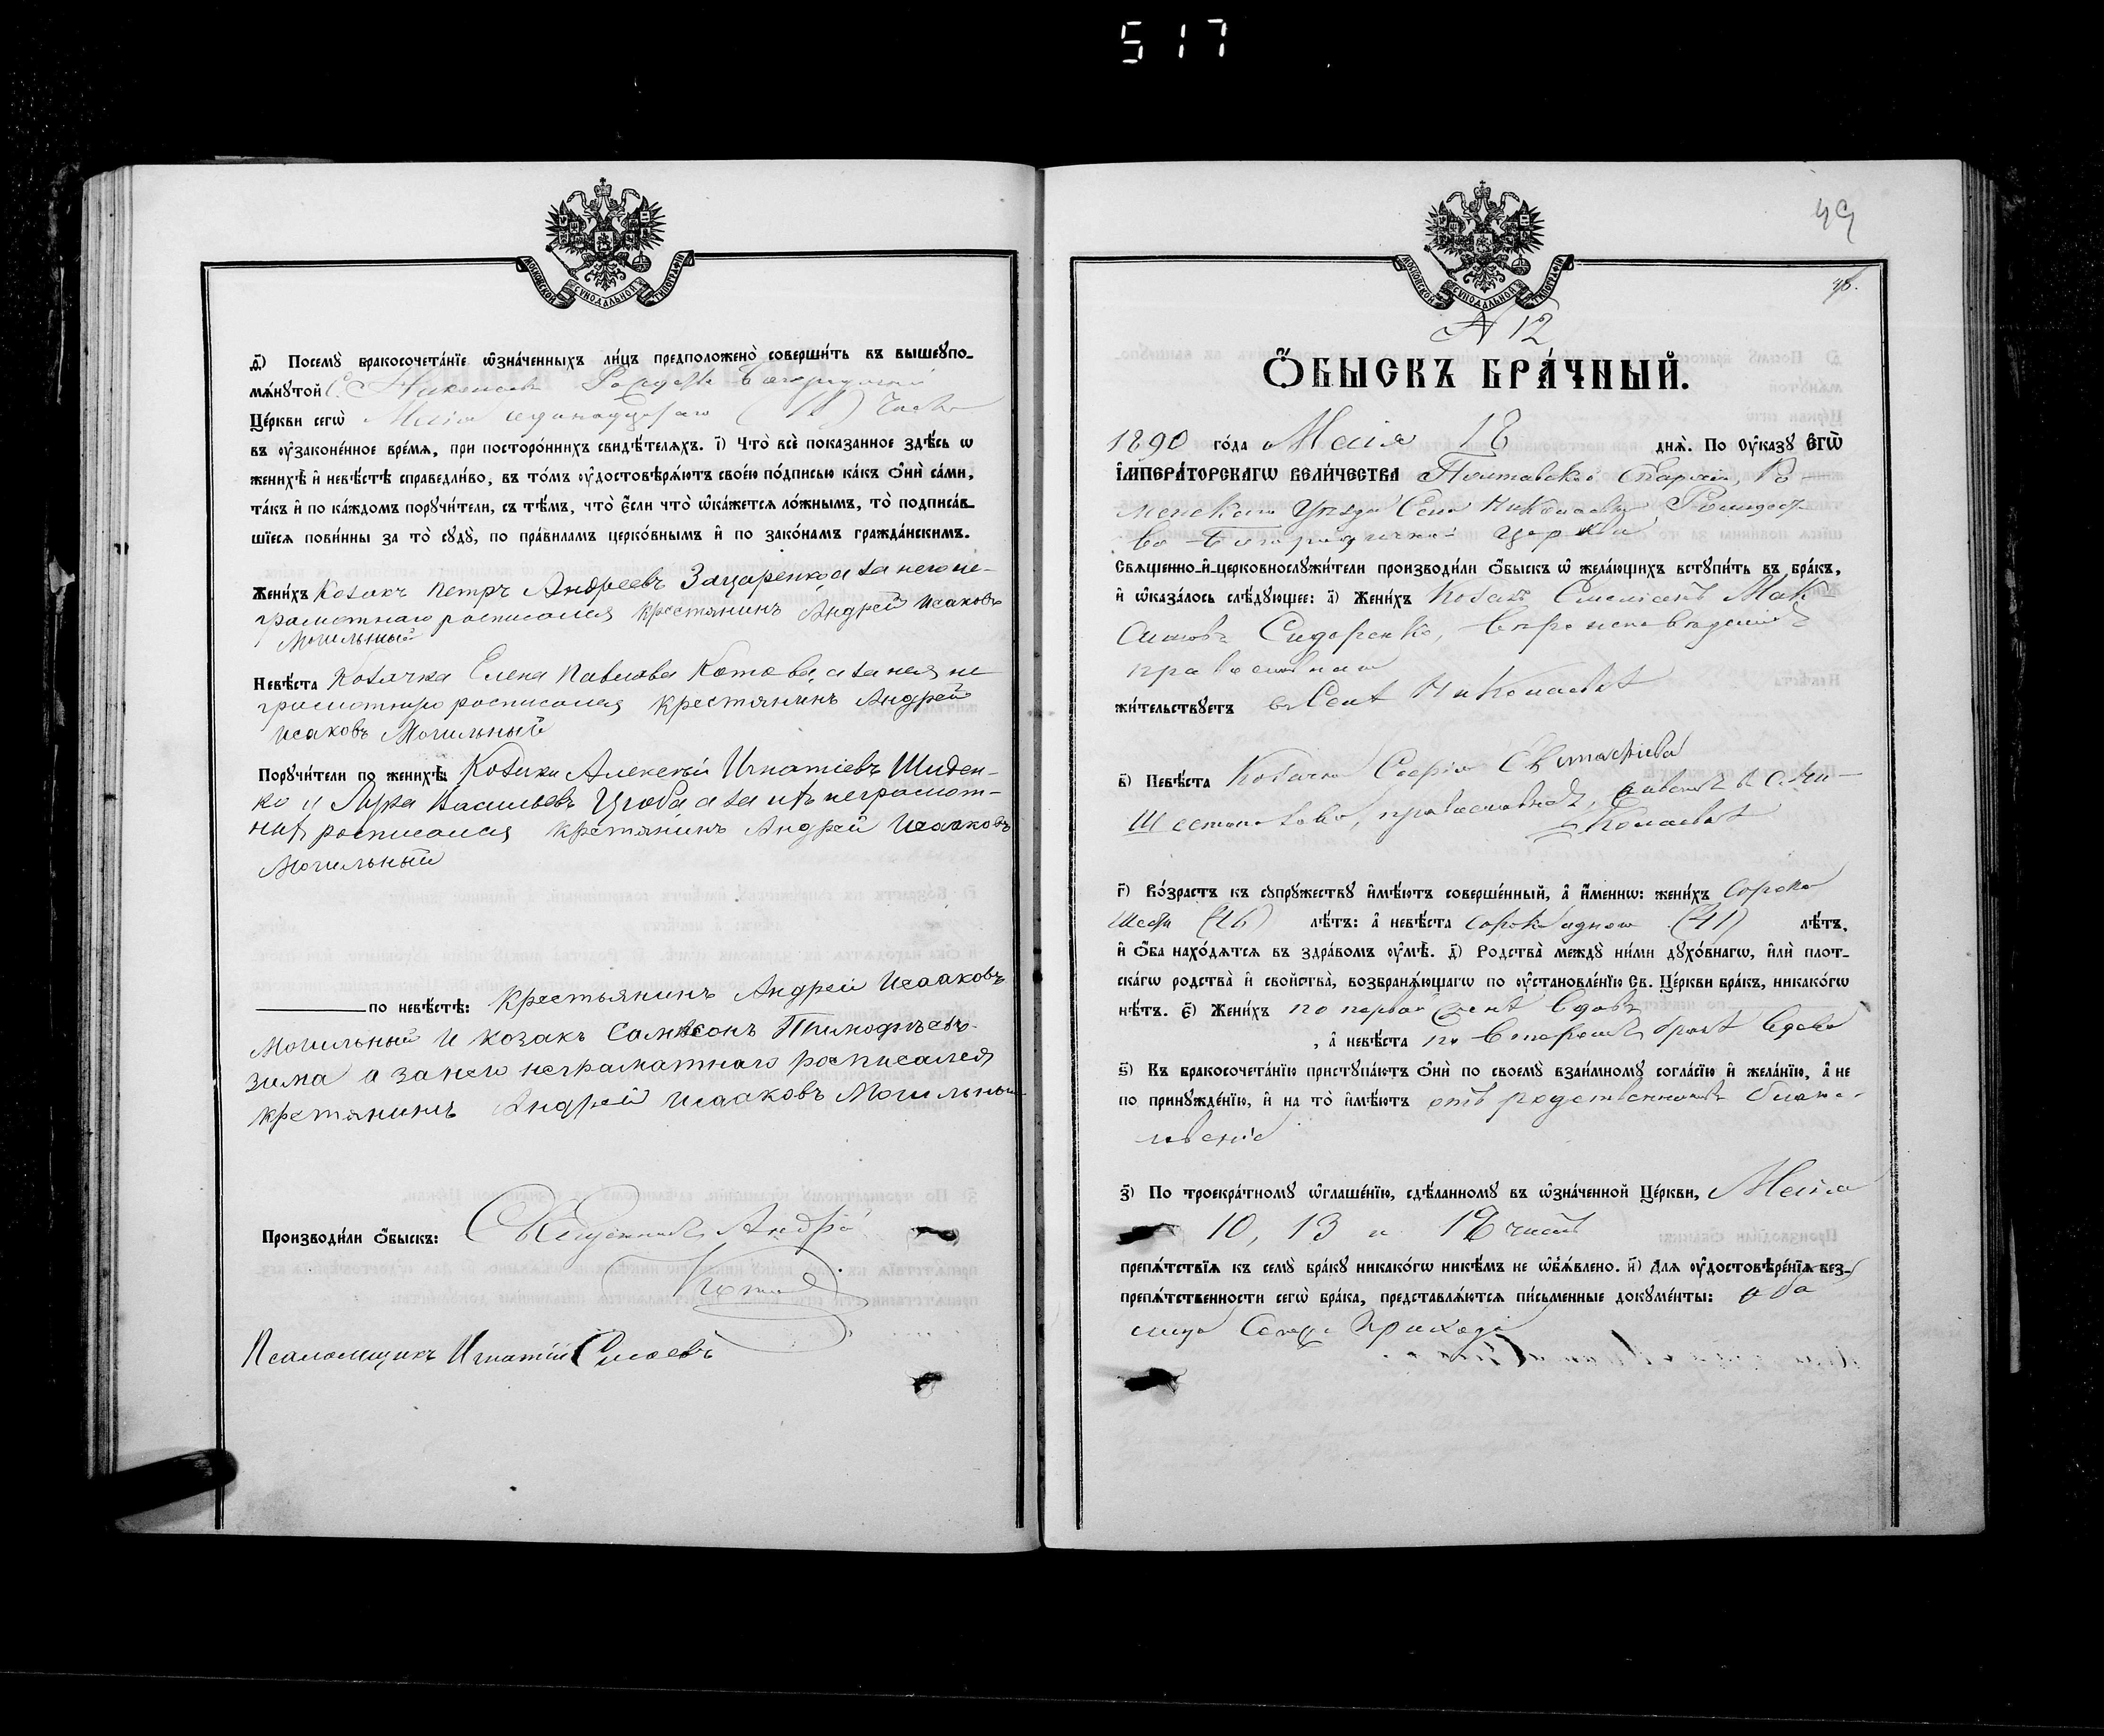 517
МОСКОВСКОЙ СѴНОДАЛЬНОЙ ТИПОГРАФІИ
д҃) Посемꙋ̀ бракосочета́нїе ѡ҆зна́ченныхъ ли́цъ предположено̀ соверши́ть въ вышеꙋпо-
мѧ́нꙋтой С. Николаевк Рождество Богородичной
Це́ркви сегѡ̀ Маія
въ ᲂу҆зако́ненное вре́мѧ, при посторо́ннихъ свидѣ́телѧхъ. і҃) Что̀ всѐ показанное здѣ́сь ѡ
женихѣ̀ и҆ невѣ́стѣ справедли́во, въ то́мъ ᲂу҆достовѣрѧ́ютъ своею по́дписью ка́къ ѻ҆нѝ са́ми,
та́къ и҆ по ка́ждомъ порꙋчи́тели, съ тѣ́мъ, что̀ є҆́сли что̀ ѡ҆ка́жетсѧ ло́жнымъ, то̀ подписа́в-
шїесѧ пови́нны за то̀ сꙋдꙋ̀, по пра́виламъ церко́внымъ и҆ по зако́намъ гражда́нскимъ.
Жени́хъ Козакъ Петръ Андреевъ Зацаренко, а за него не-
грамотнаго росписался крестянинъ Андрей Исаковъ
Могильный
Невѣ́ста Козачка Елена Павлова Котова, а за нея не
грамотную росписался крестянинъ Андрей
Исаковъ Могильный
Порꙋчи́тели по женихѣ̀: Козаки Алексѣй Игнатіевъ Шиден-
ко и Лука Васильевъ а за ихъ неграмот-
ныхъ росписался крстянинъ Андрей Исааковъ
Могильный
по невѣ́стѣ: Крестьянинъ Андрей Исааковъ
Могильный и козакъ Самсонъ Тимофѣевъ
Зима а за него неграматнаго росписался
крстянинъ Андрей Исааковъ Могильный
Производи́ли ѻ҆́быскъ: Священникъ Андрей
Псаломщикъ Игнатій
49
МОСКОВСКОЙ СѴНОДАЛЬНОЙ ТИПОГРАФІИ
№ 12
Ѻ҆́БЫСКЪ БРА́ЧНЫЙ.
1890 го́да Маія 18 днѧ̀. По ᲂу҆ка́зꙋ Є҆ГѠ̀
І҆МПЕРА́ТОРСКАГѠ ВЕЛИ́ЧЕСТВА Полтавской Епархіи, Ро-
менскаго Уѣзда Села Николаевки Рождест-
во-Богородичной церкви
Свѧщенно-и҆-церковнослꙋжи́тели производи́ли ѻ҆́быскъ ѡ҆ жела́ющихъ встꙋпи́ть въ бра́къ,
и҆ ѡ҆каза́лось слѣ́дꙋющее: а҃) Жени́хъ Козакъ Емеліанъ Мак-
симовъ Сидоренко, вѣроисповѣданія
православнаго
жи́тельствꙋетъ въ Селѣ Николаевкѣ
в҃) Невѣ́ста Козачка Софія Евстафіева
православная,
г҃) Во́зрастъ къ сꙋпрꙋ́жествꙋ и҆мѣ́ютъ соверше́нный, а҆ и҆́меннѡ: жени́хъ сорока
шести (46) лѣ́тъ: а҆ невѣ́ста сорока одного (41) лѣ́тъ,
и҆ ѻ҆́ба нахо́дѧтсѧ въ здра́вомъ ᲂу҆мѣ̀. д҃) Родства̀ междꙋ̀ ни́ми дꙋхо́внагѡ, и҆лѝ плот-
ска́гѡ родства̀ и҆ сво́йства̀, возбранѧ́ющагѡ по ᲂу҆становле́нїю Св. Це́ркви бра́къ, никако́гѡ
нѣ́тъ. є҃) Жени́хъ по первой женѣ вдовъ
, а҆ невѣ́ста по второмъ бракѣ вдова
ѕ҃) Къ бракосочета́нїю пристꙋпа́ютъ ѻ҆нѝ по своемꙋ̀ взаи́мномꙋ согла́сїю и҆ жела́нїю, а҆ не
по принꙋжде́нїю, и҆ на то̀ и҆мѣ́ютъ отъ родственниковъ благо-
словеніе
з҃) По троекра́тномꙋ ѡ҆глаше́нїю, сдѣ́ланномꙋ въ ѡ҆зна́ченной Це́ркви, Маія
10, 13 и 18 чиселъ
препѧ́тствїѧ къ семꙋ̀ бра́кꙋ никако́гѡ никѣ́мъ не ѡ҆б̾ѧ́влено. и҃) Для ᲂу҆достовѣре́нїѧ без-
препѧ́тственности сегѡ̀ бра́ка, представлѧ́ютсѧ пи́сьменные докꙋме́нты: оба
лица сего прихода